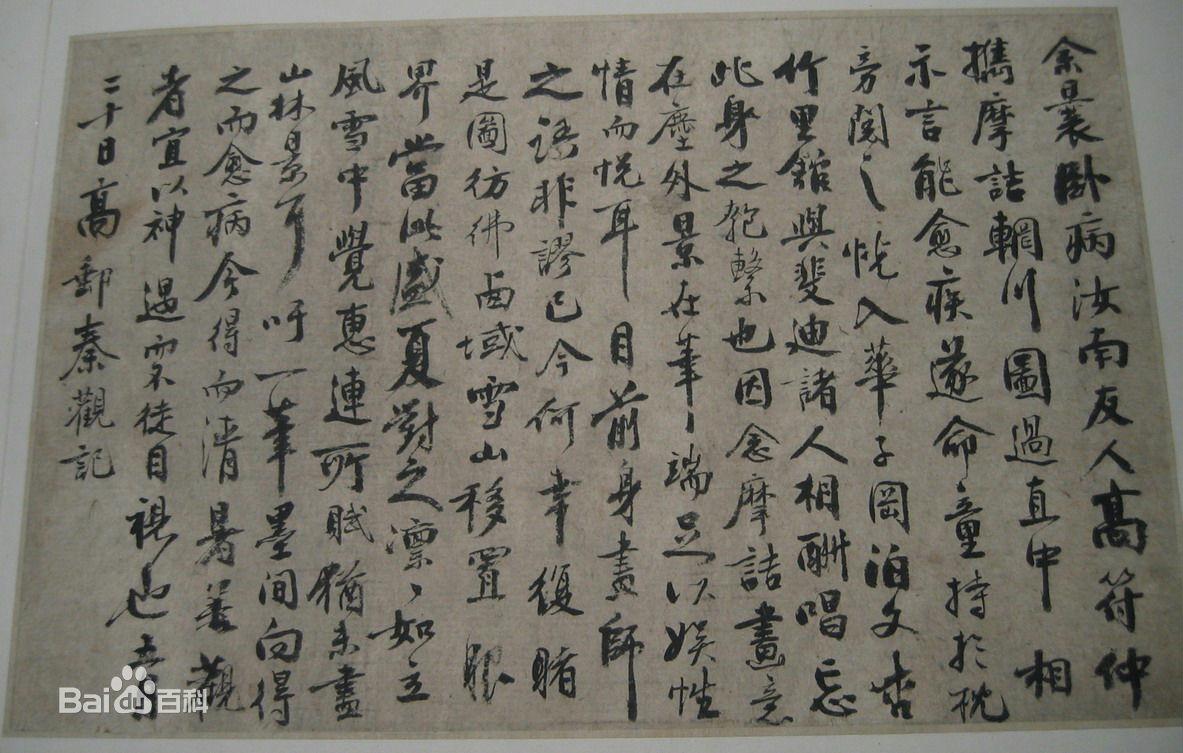 余曩卧病汝南友人高符仲
攜摩詰輞川圖過直中相
示言能愈疾遂命童持於枕
旁閱之恍入華子岡泊文杏
竹里館與斐迪諸人相酬唱忘
此身之匏繫也因念摩詰畫意
在塵外景在筆丶端足以娛性
情而悅耳目前身畫師
之語非謬已今何幸復睹
是圖彷彿西域雪山移置眼
界當此盛夏對之凜丶如立
風雪中覺惠連所賦猶未盡
山林景耳吁一筆墨間向得
之而愈病今得而清暑善觀
者宜以神遇而不徒目視也五月
二十日高郵秦觀記
Bai百科